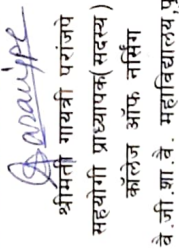 श्रीमती गायत्री परांजपे
सहयोगी प्राध्यापक(सदस्य)
कॉलेज ऑफ नर्सिंग
वै.जी.शा.वै. महाविद्यालय,पु